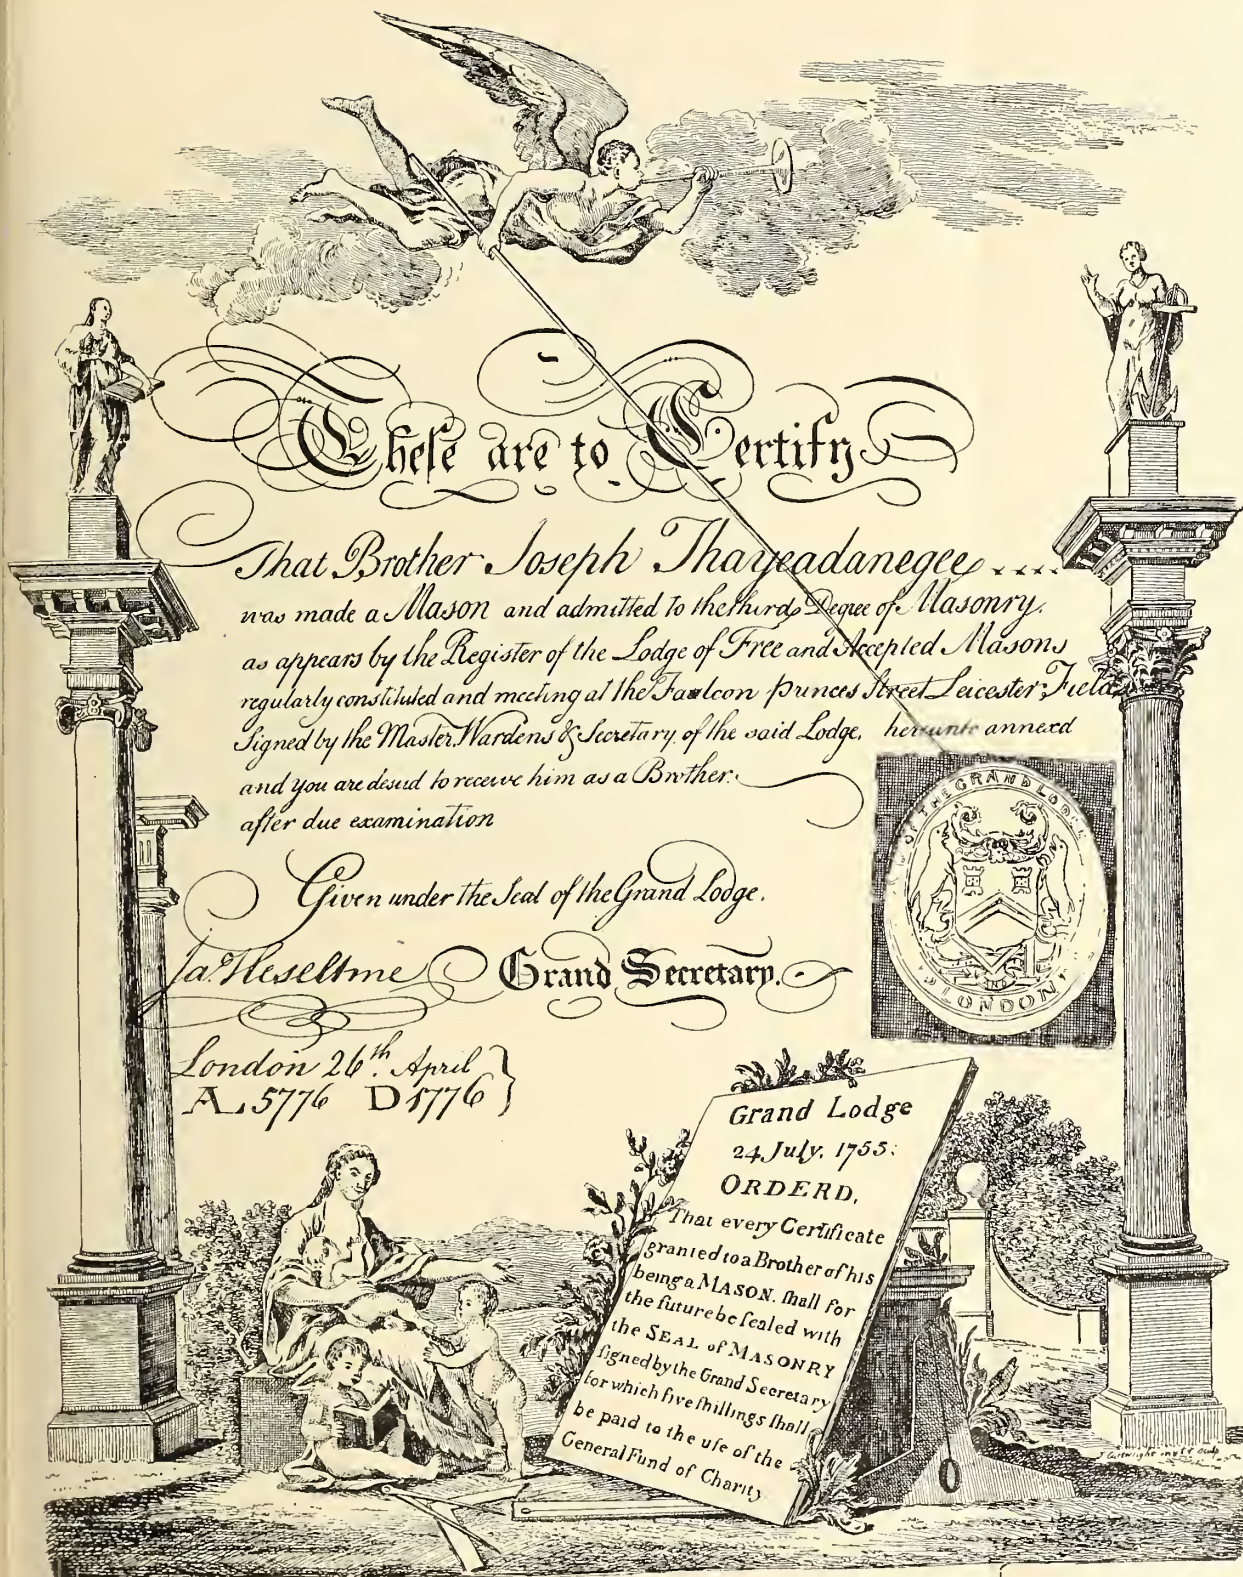 These are to Certify
That Brother Joseph Thayeadanegee....
was made a Mason and admitted to the third Degree of Masonry.
as appears by the Register of the Lodge of Free and Accepted Masons
regularly constituted and meeting at the Faulcon princes Street Leicester Field
Signed by the Master, Wardens & Secretary of the said Lodge, hereunto annexd
and you are desird to receive him as a Brother.
after due examination
Given under the Seal of the Grand Lodge.
Jas. Heseltine Grand Secretary.
London 26th. April
A. L. 5776 D 1776
OF THE GRAND LODGE
LONDON
Grand Lodge
24 July, 1755:
ORDERD,
That every Certificate
granted to a Brother of his
being a MASON, ſhall for
the future be ſealed with
the SEAL of MASONRY
ſigned by the Grand Secretary
for which five ſhillings ſhall
be paid to the uſe of the
General Fund of Charity